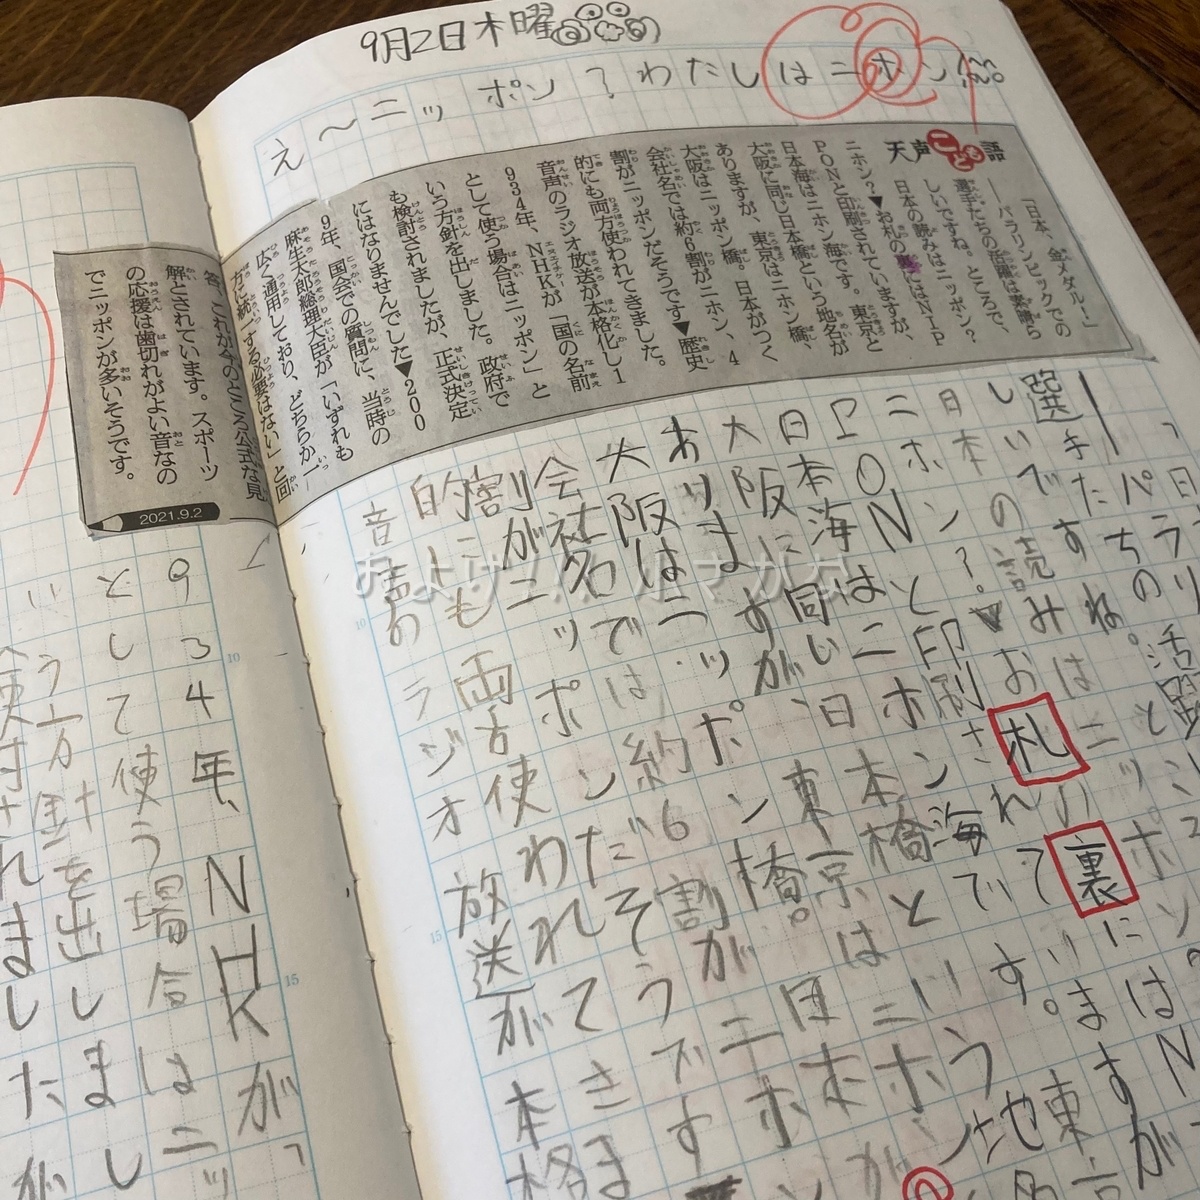 9月2日木曜
え〜ニッポン?わたしはニホン
天声こども語
「日本、金メダル!」
――パラリンピックでの
選手たちの活躍は素晴ら
しいですね。ところで、
日本の読みはニッポン?
ニホン?▼お札の裏にはNIP
PONと印刷されていますが、
日本海はニホン海です。東京と
大阪に同じ日本橋という地名が
ありますが、東京はニホン橋、
大阪はニッポン橋。日本がつく
会社名では約6割がニホン、4
割がニッポンだそうです▼歴史
的にも両方使われてきました。
音声のラジオ放送が本格化し1
934年、NHKが「国の名前
として使う場合はニッポン」と
いう方針を出しました。政府で
も検討されましたが、正式決定
にはなりませんでした▼200
9年、国会での質問に、当時の
麻生太郎総理大臣が「いずれも
広く通用しており、どちらか一
方に統一する必要はない」と回
答。これが今のところ公式な見
解とされています。スポーツ
の応援は歯切れがよい音なの
でニッポンが多いそうです。
2021.9.2
「日
ーパラリ
選手たちの活躍
しいですね。と
の読みはニッポン?
日本
ニホン?▼お札の裏に はN
PONと印刷されていますが
日本海はニホン海です。東京
大阪に同じ日本橋という地名
ありますが、東京はニホン
大阪はニッポン橋。日本が
会社名では約6割がニホ
割がニッポンだそうです
的にも両方使われてきま
音声のラジオ放送が本格
934年、NHKが「
として使う場合はニッ
いう方針を出しまし
れましたが
およげ!!小さかな
10
15
10
15